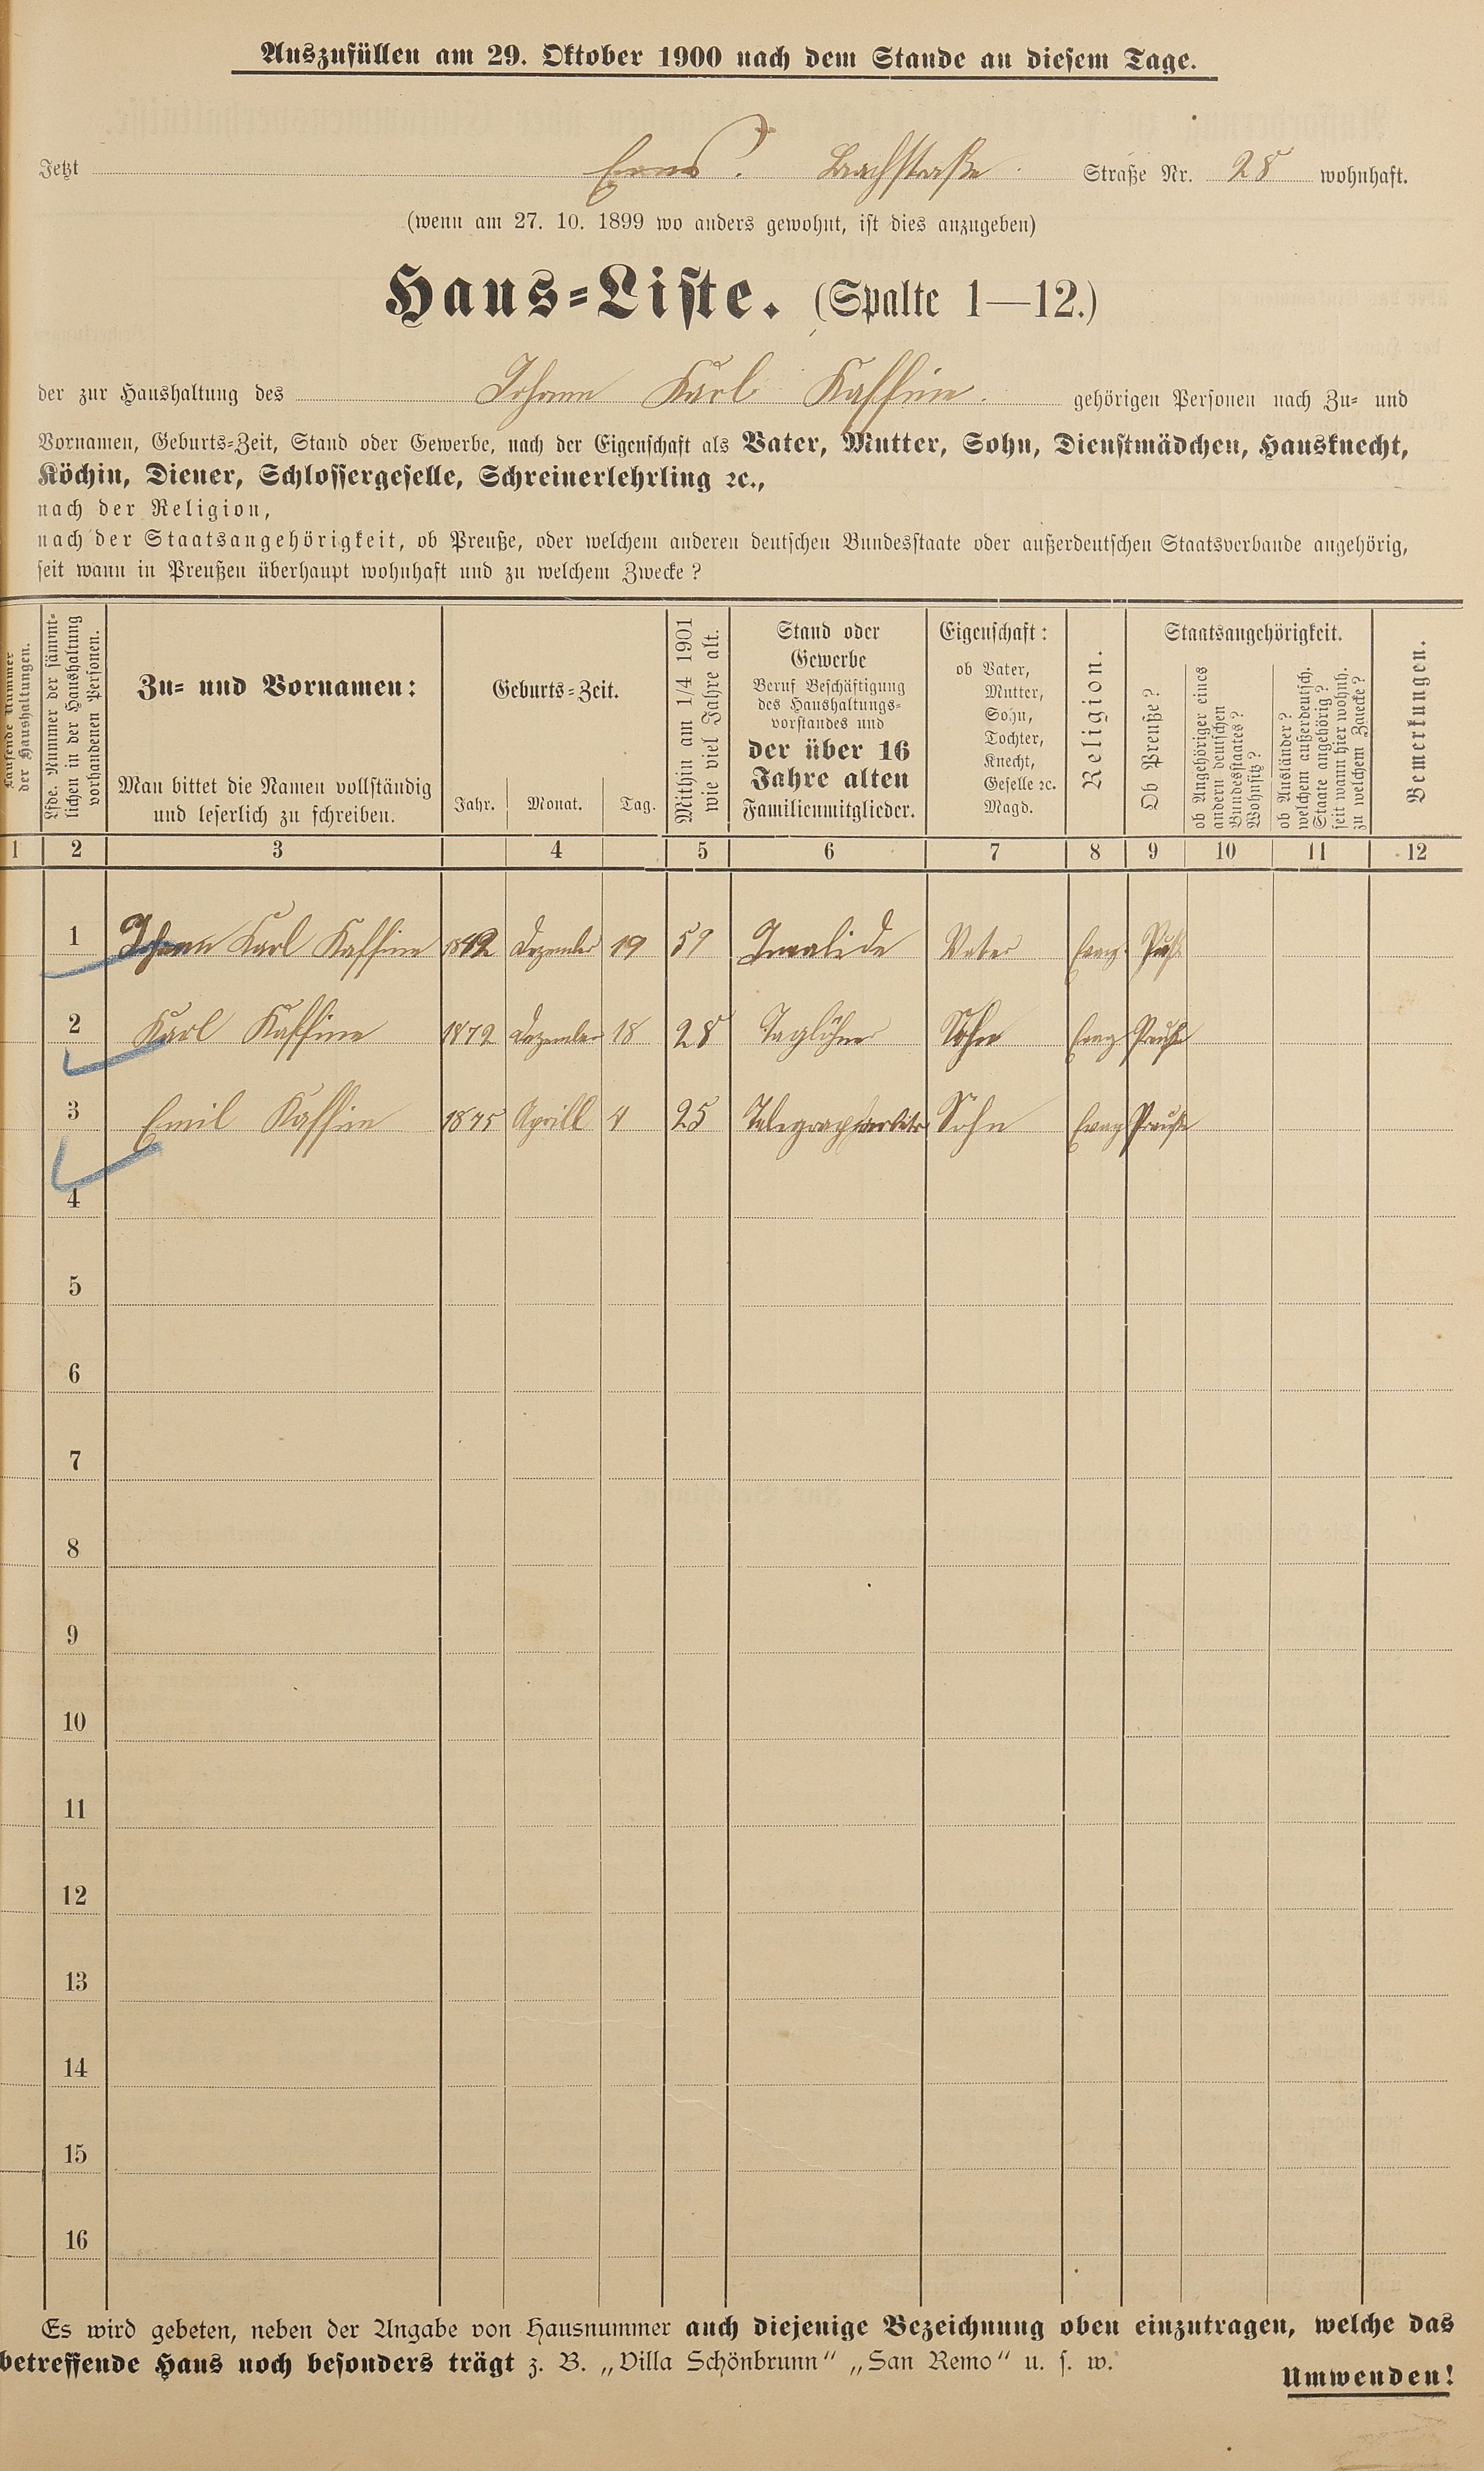 Auszufüllen am 29. Oktober 1900 nach dem Stande an diesem Tage.
Jetzt Ems. Bachstraße. Straße Nr. 28 wohnhaft.
(wenn am 27. 10. 1899 wo anders gewohnt, ist dies anzugeben)
Haus-Liste. (Spalte 1—12.)
der zur Haushaltung des Johann Karl Kaffine. gehörigen Personen nach Zu- und
Vornamen, Geburts-Zeit, Stand oder Gewerbe, nach der Eigenschaft als Vater, Mutter, Sohn, Dienstmädchen, Hausknecht,
Köchin, Diener, Schlossergeselle, Schreinerlehrling ꝛc.,
nach der Religion,
nach der Staatsangehörigkeit, ob Preuße, oder welchem anderen deutschen Bundesstaate oder außerdeutschen Staatsverbande angehörig,
seit wann in Preußen überhaupt wohnhaft und zu welchem Zwecke?
Laufende Nummer
der Haushaltungen.
Lfde. Nummer der sämmt-
lichen in der Haushaltung
vorhandenen Personen.
Zu- und Vornamen:
Man bittet die Namen vollständig
und leserlich zu schreiben.
Geburts-Zeit.
Jahr. Monat. Tag.
Mithin am 1/4 1901
wie viel Jahre alt.
Stand oder
Gewerbe
Beruf Beschäftigung
des Haushaltungs-
vorstandes und
der über 16
Jahre alten
Familienmitglieder.
Eigenschaft:
ob Vater,
Mutter,
Sohn,
Tochter,
Knecht,
Geselle ꝛc.
Magd.
Religion.
Staatsangehörigkeit.
Ob Preuße?
ob Angehöriger eines
andern deutschen
Bundesstaates?
Wohnsitz?
ob Ausländer?
welchem außerdeutsch.
Staate angehörig?
seit wann hier wohnh.
zu welchem Zwecke?
Bemerkungen.
1 2 3 4 5 6 7 8 9 10 11 12
1 Johann Karl Kaffine 1842 Dezember 19 Invalide Vater Evang.
2 Karl Kaffine 1872 Dezember 18 28 Taglöhner Sohn Evang Preuße
3 Emil Kaffine 1875 Aprill 4 25 Telegraphenarbeiter Sohn Evang Preuße
4
5
6
7
8
9
10
11
12
13
14
15
16
Es wird gebeten, neben der Angabe von Hausnummer auch diejenige Bezeichnung oben einzutragen, welche das
betreffende Haus noch besonders trägt z. B. „Villa Schönbrunn“ „San Remo“ u. s. w.
Umwenden!